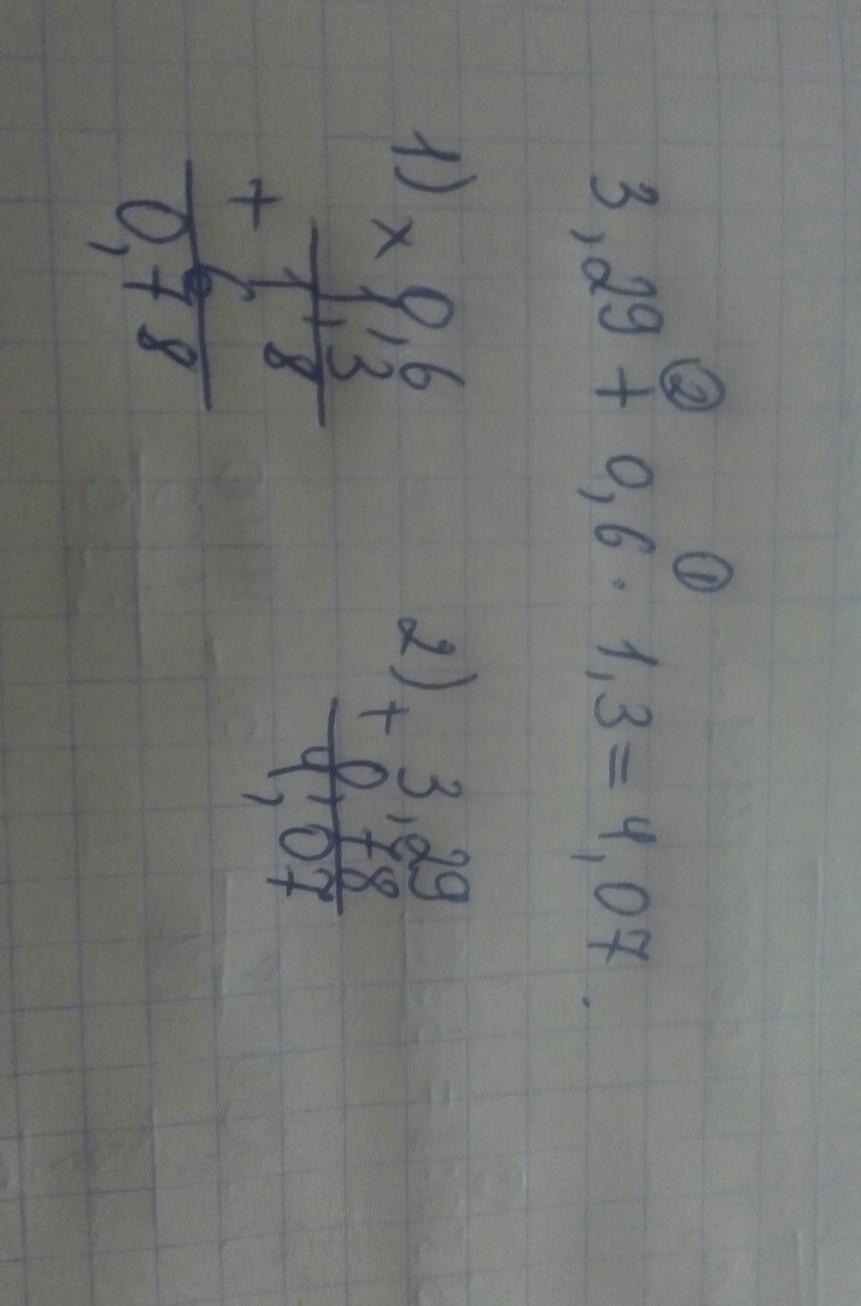 ② ①
3,29 + 0,6 · 1,3 = 4,07.
1) × 0,6
1,3
18
+ 6
0,78
2) + 3,29
0,78
4,07